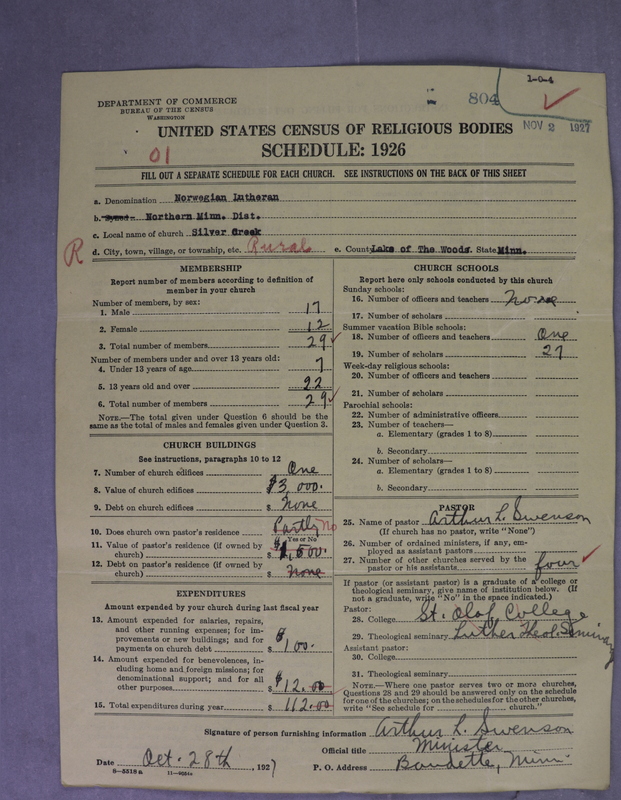 1-0-4
DEPARTMENT OF COMMERCE
BUREAU OF THE CENSUS
WASHINGTON
804
NOV 2 1927
UNITED STATES CENSUS OF RELIGIOUS BODIES
01
SCHEDULE: 1926
FILL OUT A SEPARATE SCHEDULE FOR EACH CHURCH. SEE INSTRUCTIONS ON THE BACK OF THIS SHEET
a. Denomination Norwegian Lutheran
b. Synod Northern Minn. Dist.
c. Local name of church Silver Creek
R d. City, town, village, or township, etc. Rural e. County Lake of The Woods. State Minn.
MEMBERSHIP
Report number of members according to definition of
member in your church
Number of members, by sex:
1. Male 17
2. Female 12
3. Total number of members 29
Number of members under and over 13 years old:
4. Under 13 years of age 7
5. 13 years old and over 22
6. Total number of members 29
NOTE.—The total given under Question 6 should be the
same as the total of males and females given under Question 3.
CHURCH BUILDINGS
See instructions, paragraphs 10 to 12
7. Number of church edifices One
8. Value of church edifices $3,000.
9. Debt on church edifices $ None
10. Does church own pastor's residence Partly No
Yes or No
11. Value of pastor's residence (if owned by
church) $1,500.
12. Debt on pastor's residence (if owned by
church) $ None
EXPENDITURES
Amount expended by your church during last fiscal year
13. Amount expended for salaries, repairs,
and other running expenses; for im-
provements or new buildings; and for
payments on church debt $100.
14. Amount expended for benevolences, in-
cluding home and foreign missions; for
denominational support; and for all
other purposes $12.00
15. Total expenditures during year $112.00
CHURCH SCHOOLS
Report here only schools conducted by this church
Sunday schools:
16. Number of officers and teachers None
17. Number of scholars
Summer vacation Bible schools:
18. Number of officers and teachers One
19. Number of scholars 27
Week-day religious schools:
20. Number of officers and teachers
21. Number of scholars
Parochial schools:
22. Number of administrative officers
23. Number of teachers—
a. Elementary (grades 1 to 8)
b. Secondary
24. Number of scholars—
a. Elementary (grades 1 to 8)
b. Secondary
PASTOR
25. Name of pastor Arthur L. Swenson
(If church has no pastor, write "None")
26. Number of ordained ministers, if any, em-
ployed as assistant pastors
27. Number of other churches served by the
pastor or his assistants four
If pastor (or assistant pastor) is a graduate of a college or
theological seminary, give name of institution below. (If
not a graduate, write "No" in the space indicated.)
Pastor:
28. College St. Olaf College
29. Theological seminary Luther Theol. Seminary
Assistant pastor:
30. College
31. Theological seminary
NOTE.—Where one pastor serves two or more churches,
Questions 28 and 29 should be answered only on the schedule
for one of the churches; on the schedules for the other churches,
write "See schedule for church."
Signature of person furnishing information Arthur L. Swenson
Official title Minister
Date Oct. 28th, 1927 P. O. Address Baudette, Minn
9-5518a